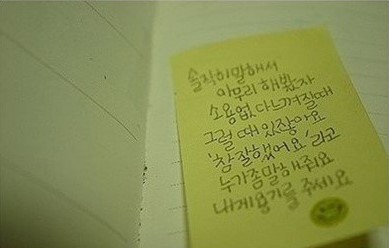 솔직히말해서
아무리 해봤자
소용없다느껴질때
그럴 때 있잖아요
'참잘했어요'라고
누가좀말해줘요
내게용기를 주세요